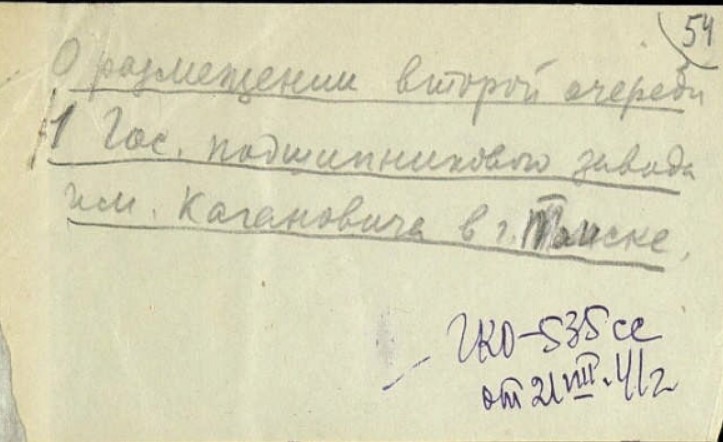 54
О размещении второй очереди
1 Гос. подшипникового завода
им. Кагановича в г. Томске.
ГКО-535сс
от 21/VIII.41г